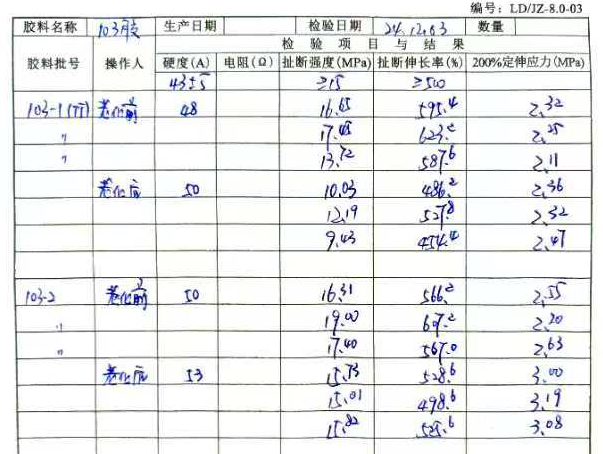 编号: LD/JZ-8.0-03
胶料名称 103胶 生产日期 检验日期 24.12.03 数量
胶料批号 操作人 检验项目与结果
硬度(A) 电阻(Ω) 扯断强度(MPa) 扯断伸长率(%) 200%定伸应力(MPa)
43±5 ≥15 ≥500
103-1 老化前 48 16.65 595.4 2.32
〃 17.45 623.2 2.25
〃 13.72 587.6 2.11
老化后 50 10.03 486.2 2.36
12.19 527.8 2.32
9.43 454.4 2.47
103-2 老化前 50 16.31 566.2 2.55
〃 19.00 607.2 2.20
〃 17.40 567.0 2.63
老化后 53 15.73 528.6 3.00
15.01 498.6 3.19
15.82 525.6 3.08